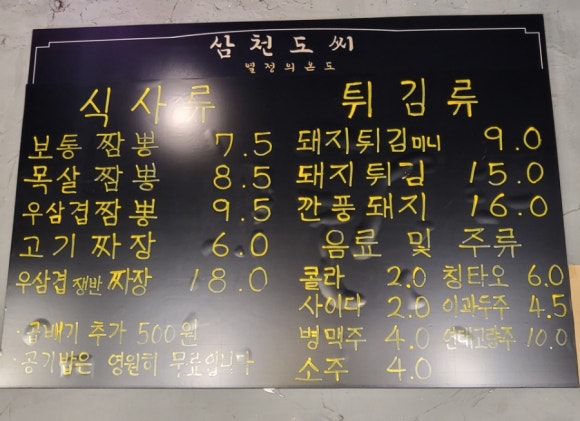 삼천도씨
별정의온도
식사류
보통 짬뽕 7.5
목살 짬뽕 8.5
우삼겹짬뽕 9.5
고기짜장 6.0
우삼겹 쟁반 짜장 18.0
·곱배기 추가 500원
·공기밥은 영원히 무료입니다
튀김류
돼지튀김미니 9.0
돼지튀김 15.0
깐풍돼지 16.0
음료 및 주류
콜라 2.0
사이다 2.0
병맥주 4.0
소주 4.0
칭타오 6.0
이과두주 4.5
연태고량주 10.0